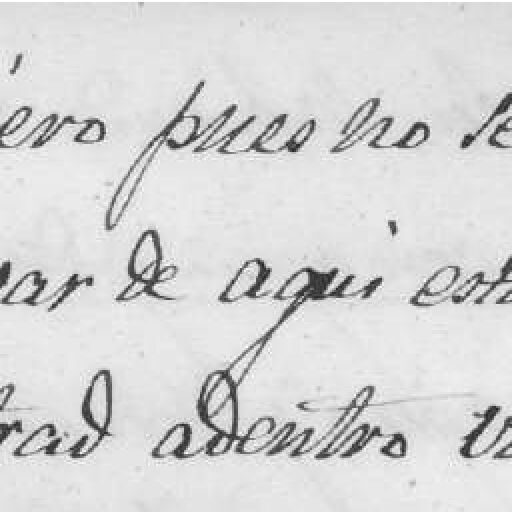 iero pues no se
var de aqui est
trad adentro v